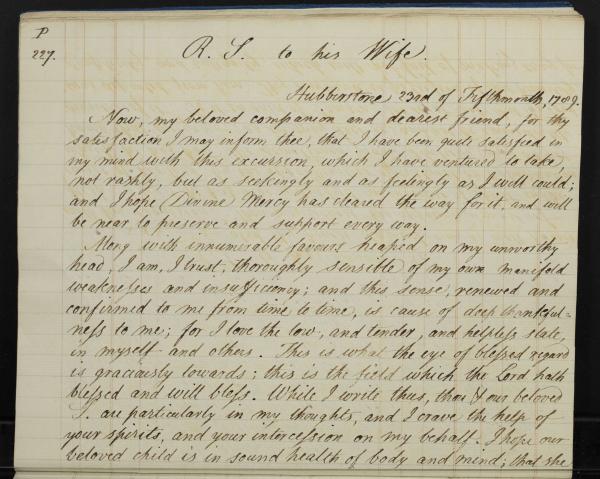 P
227.
R. S. to his Wife.
Hubberstone 23rd of Fifthmonth, 1789.
Now, my beloved companion and dearest friend, for thy
satisfaction I may inform thee, that I have been quite satisfied in
my mind with this excursion, which I have ventured to take,
not rashly, but as seekingly and as feelingly as I well could;
and I hope Divine Mercy has cleared the way for it, and will
be near to preserve and support every way.
Along with innumerable favours heaped on my unworthy
head, I am, I trust, thoroughly sensible of my own manifold
weaknesses and insufficiency; and this sense, renewed and
confirmed to me from time to time, is cause of deep thankful=
ness to me; for I love the low, and tender, and helpless state,
in myself and others. This is what the eye of blessed regard
is graciously towards; this is the field which the Lord hath
blessed and will bless. While I write thus, thou & our beloved
S. are particularly in my thoughts, and I crave the help of
your spirits, and your intercession on my behalf. I hope our
beloved child is in sound health of body and mind; that she